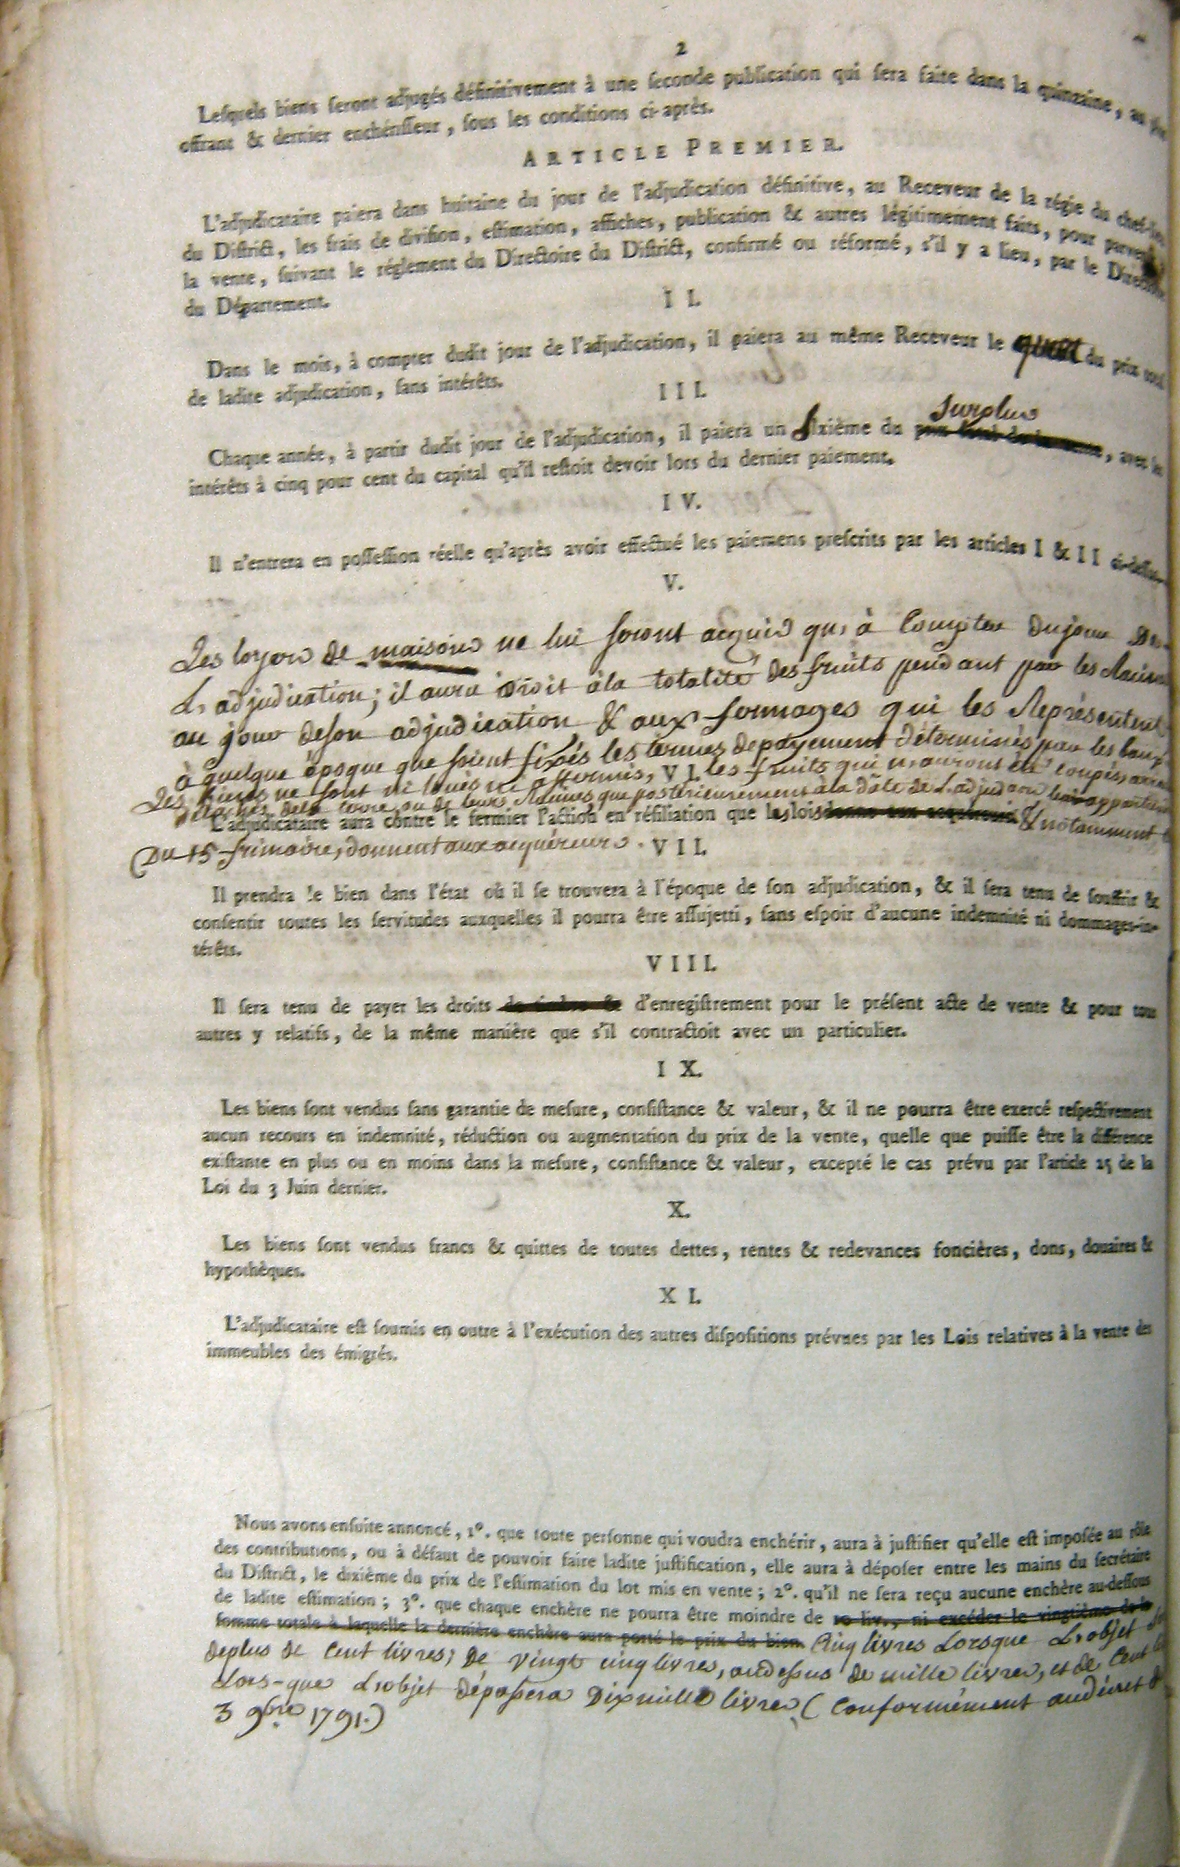 2
Leſquels biens ſeront adjugés définitivement à une ſeconde publication qui ſera faite dans la quinzaine, au plus
offrant & dernier enchériſſeur, ſous les conditions ci-après.
ARTICLE PREMIER.
L'adjudicataire paiera dans huitaine du jour de l'adjudication définitive, au Receveur de la régie du chef-lieu
du Diſtrict, les frais de diviſion, eſtimation, affiches, publication & autres légitimement faits, pour parvenir à
la vente, ſuivant le réglement du Directoire du Diſtrict, confirmé ou réformé, s'il y a lieu, par le Directoire
du Département.
II.
Dans le mois, à compter dudit jour de l'adjudication, il paiera au même Receveur le quart du prix total
de ladite adjudication, ſans intérêts.
III.
Surplus
Chaque année, à partir dudit jour de l'adjudication, il paiera un ſixième du prix total de la vente, avec les
intérêts à cinq pour cent du capital qu'il reſtoit devoir lors du dernier paiement.
IV.
Il n'entrera en poſſeſſion réelle qu'après avoir effectué les paiemens preſcrits par les articles I & II ci-deſſus.
V.
Les loyers de maisons ne lui seront acquis qu'à Compter du jour De
L'adjudication; il aura droit à la totalité des fruits pendant par les Racines
au jour de son adjudication & aux fermages qui les Représentent
à quelque époque que soient fixés les termes de payement déterminés par les baux
VI.
Les biens ne sont ni loués ni affermés, les fruits qui n'auront été coupés,
détachés de la terre ou de leurs Racines que postérieurement à la date de L'adjudaon lui appartiendront
L'adjudicataire aura contre le fermier l'action en réſiliation que les lois & notamment
(Du 15 frimaire, donnent aux acquéreurs.
VII.
Il prendra le bien dans l'état où il ſe trouvera à l'époque de ſon adjudication, & il ſera tenu de ſouffrir &
conſentir toutes les ſervitudes auxquelles il pourra être aſſujetti, ſans eſpoir d'aucune indemnité ni dommages-in-
térêts.
VIII.
Il ſera tenu de payer les droits de timbre & d'enregiſtrement pour le préſent acte de vente & pour tous
autres y relatifs, de la même manière que s'il contractoit avec un particulier.
IX.
Les biens ſont vendus ſans garantie de meſure, conſiſtance & valeur, & il ne pourra être exercé reſpectivement
aucun recours en indemnité, réduction ou augmentation du prix de la vente, quelle que puiſſe être la différence
exiſtante en plus ou en moins dans la meſure, conſiſtance & valeur, excepté le cas prévu par l'article 25 de la
Loi du 3 Juin dernier.
X.
Les biens ſont vendus francs & quittes de toutes dettes, rentes & redevances foncières, dons, douaires &
hypothèques.
XI.
L'adjudicataire eſt ſoumis en outre à l'exécution des autres diſpoſitions prévues par les Lois relatives à la vente des
immeubles des émigrés.
Nous avons enſuite annoncé, 1°. que toute perſonne qui voudra enchérir, aura à juſtifier qu'elle eſt impoſée au rôle
des contributions, ou à défaut de pouvoir faire ladite juſtification, elle aura à dépoſer entre les mains du ſecrétaire
du Diſtrict, le dixième du prix de l'eſtimation du lot mis en vente; 2°. qu'il ne ſera reçu aucune enchère au-deſſous
de ladite eſtimation; 3°. que chaque enchère ne pourra être moindre de 10 liv., ni excéder le vingtième de la
ſomme totale à laquelle la dernière enchère aura porté le prix du bien. Cinq livres Lorsque L'objet
de plus de Cent livres; De vingt cinq livres, au dessus de mille livres, et de Cent
Lors-que L'objet dépassera Dix mille livres (Conformément au décret
3 9bre 1791.)